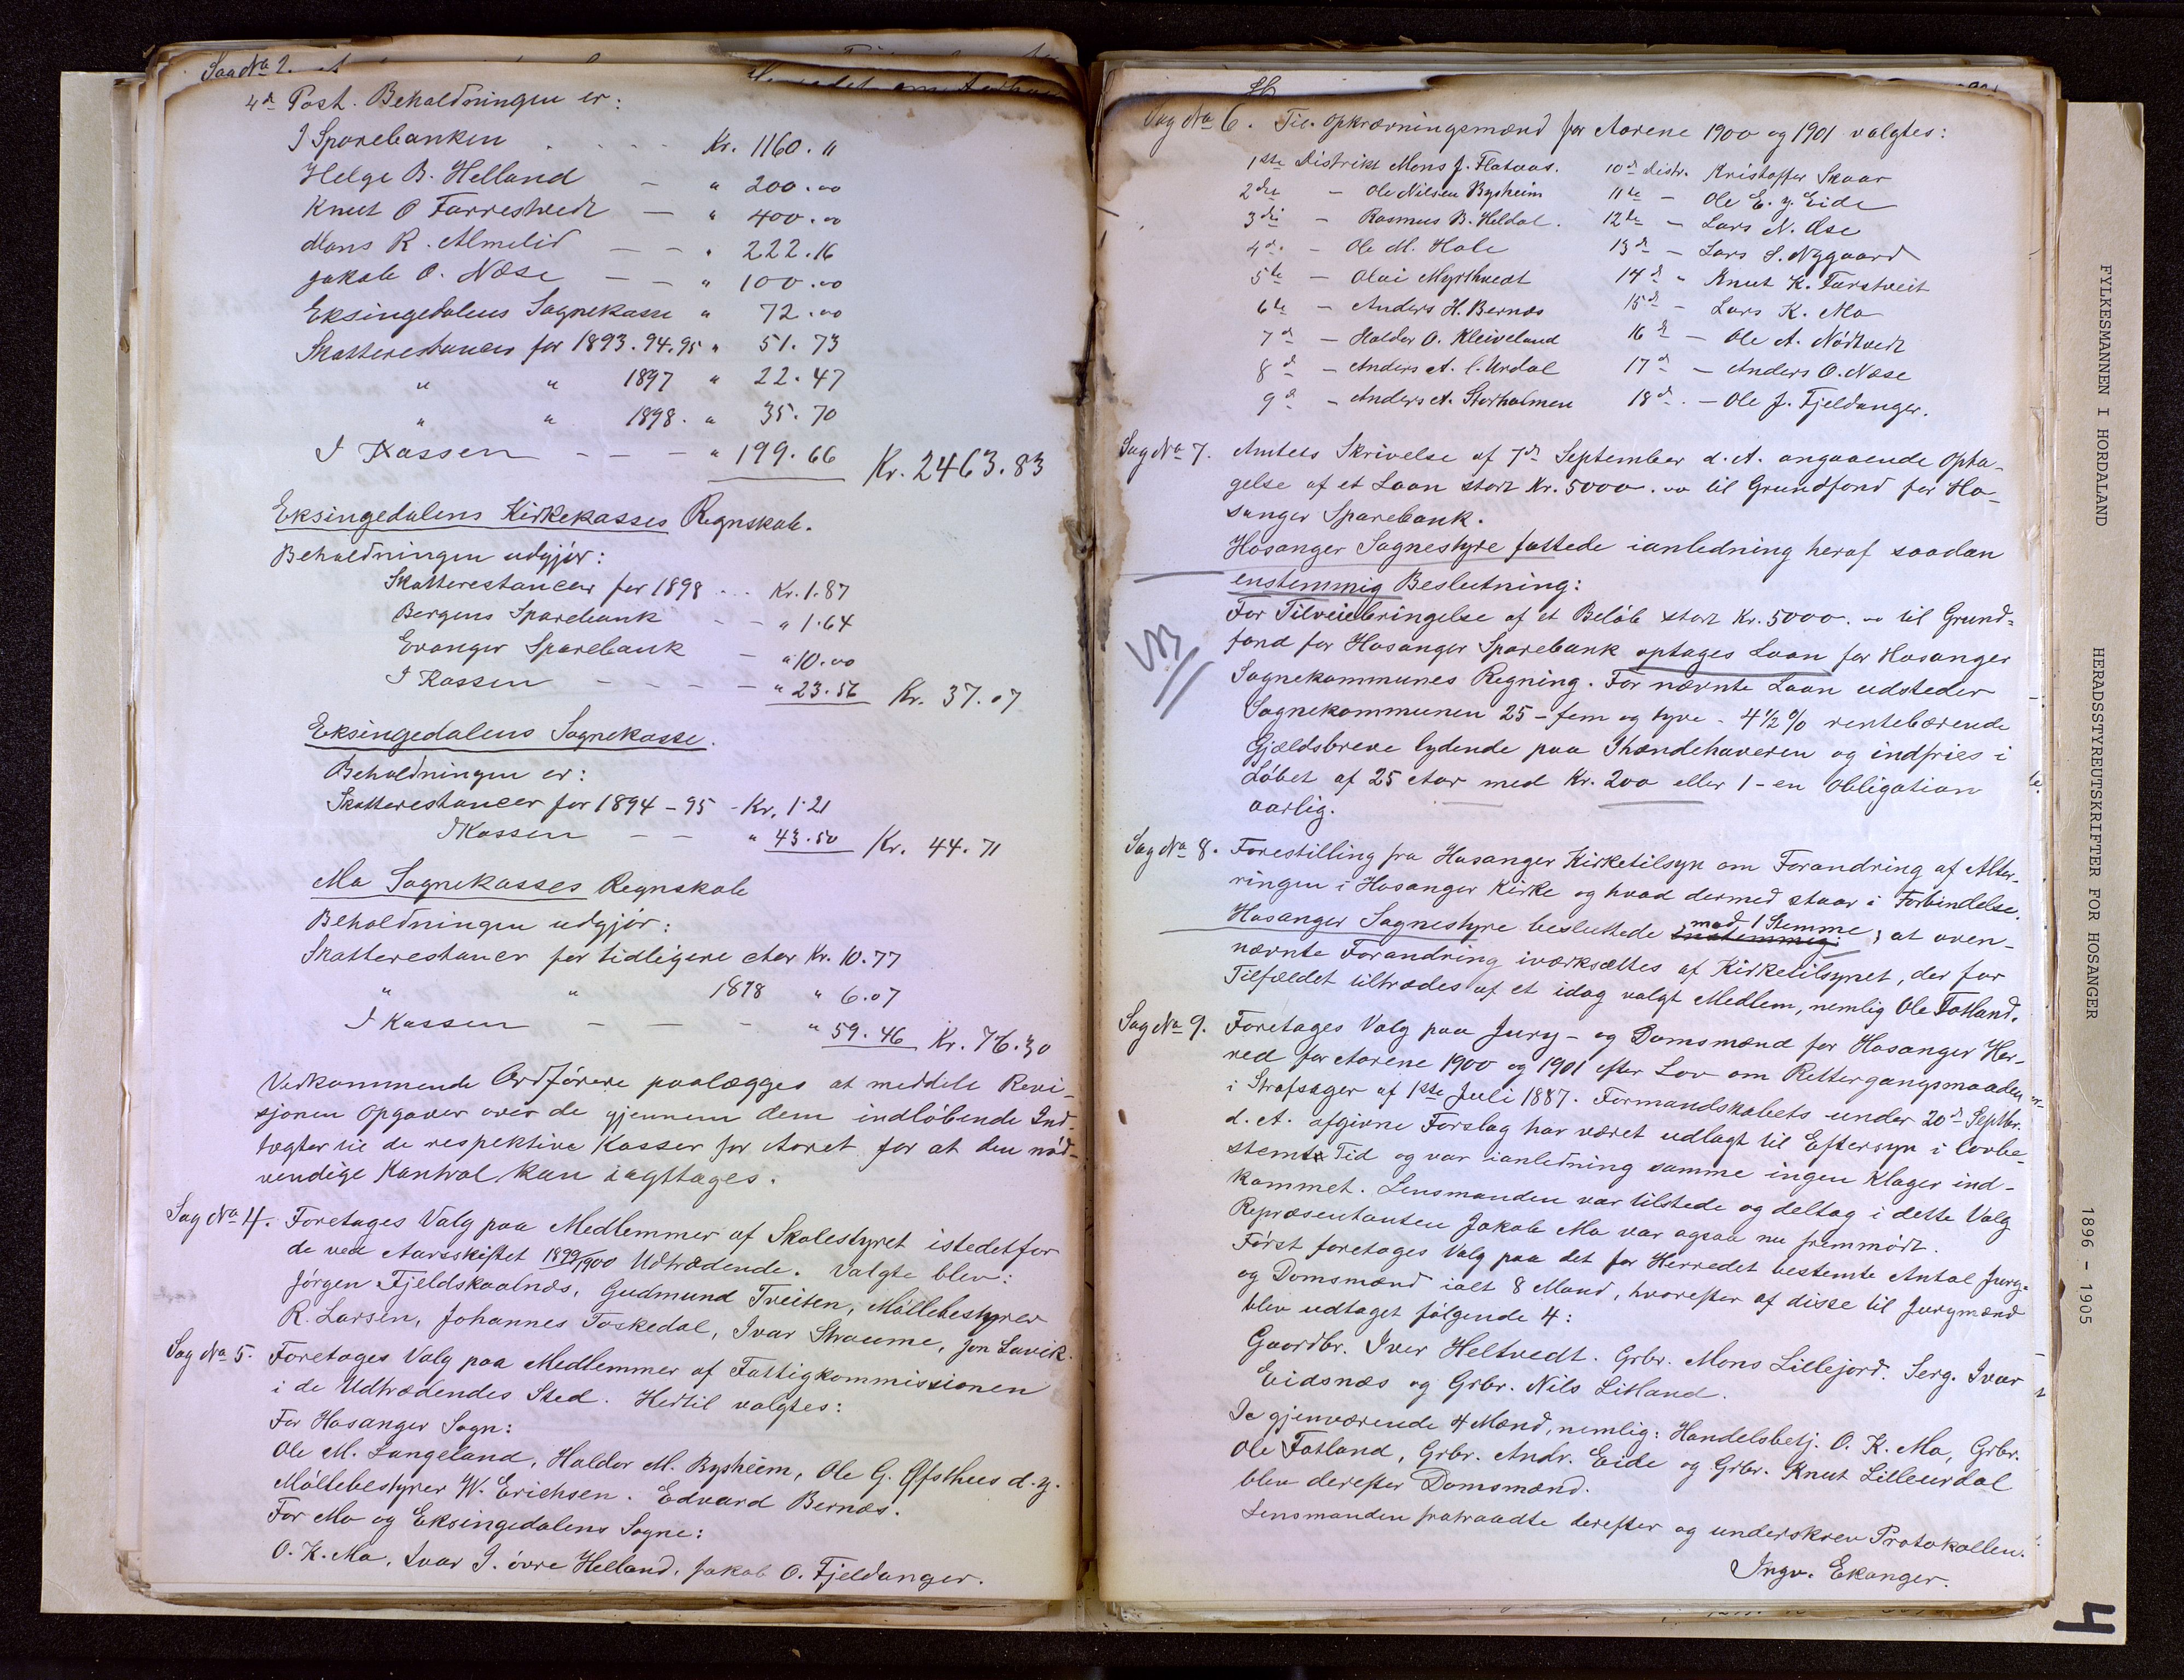 Sag No 2.
4de Post. Beholdningen er:
I Sparebanken . . . . . Kr. 1160. "
Helge B. Helland — " 200.00
Knut O Farrestvedt — " 400.00
Mons R. Almelid — — " 222.16
Jakob O. Næse — — " 100.00
Eksingedalens Sognekasse " 72.00
Skatterestancer for 1893.94.95 " 51.73
" " 1897 " 22.47
" " 1898. " 35.70
I Kassen — — — " 199.66 Kr. 2463.83
Eksingedalens Kirkekasses Regnskab.
Beholdningen udgjör:
Skatterestancer for 1898 . . . Kr. 1.87
Bergens Sparebank — — " 1.64
Evanger Sparebank — " 10.00
I Kassen — — — — " 23.56 Kr. 37.07
Eksingedalens Sognekasse.
Beholdningen er:
Skatterestancer for 1894-95 - Kr. 1.21
I Kassen — — " 43.50 Kr. 44.71
Mo Sognekasses Regnskab
Beholdningen udgjör:
Skatterestancer for tidligere Aar Kr. 10.77
" " 1898 " 6.07
I Kassen — — — " 59.46 Kr. 76.30
Vedkommende Ordförere paalægges at meddele Revi-
sjonen Opgaver over de gjennem dem indlöbende Ind-
tægter til de respektive Kasser for Aaret for at den nöd-
vendige Kontrol kan iagttages.
Sag No 4. Foretoges Valg paa Medlemmer af Skolestyret istedetfor
de ved Aarsskiftet 1899/1900 Udtrædende. Valgte blev:
Jörgen Fjeldskaalnæs, Gudmund Treiten, Möllebestyrer
R. Larsen, Johannes Toskedal, Ivar Straume, Jon Lavik.
Sag No 5. Foretoges Valg paa Medlemmer af Fattigkommissionen
i de Udtrædendes Sted. Hertil valgtes:
For Hosanger Sogn:
Ole M. Langeland, Haldor M. Bysheim, Ole G. Öfsthus d.y.
Möllebestyrer W. Erichsen. Edvard Bernæs.
For Mo og Eksingedalens Sogne:
O. K. Mo, Ivar I. övre Helland, Jakob O. Fjeldanger.
Sag No 6. Til Opkrævningsmænd for Aarene 1900 og 1901 valgtes:
1ste Distrikt Mons J. Flatøas. 10de distr. Kristoffer Skaar
2det — Ole Nilsen Bysheim 11te — Ole E. y. Eide
3die — Rasmus B. Heldal. 12te — Lars N. Øse
4de — Ole M. Hole 13de — Lars S. Nygaard
5te — Olai Myrthvedt 14de " Knut K. Farstveit
6te — Anders H. Bernæs 15de — Lars K. Mo
7de — Haldor O. Kleiveland 16de — Ole A. Nödtvedt
8de — Anders A. l. Urdal 17de — Anders O. Næse
9de — Anders A. Storholmen 18de — Ole J. Fjeldanger.
Sag No 7. Amtets Skrivelse af 7de September d. A. angaaende Opta-
gelse af et Laan stort Kr. 5000.00 til Grundfond for Ho-
sanger Sparebank.
Hosanger Sognestyre fattede ianledning heraf saadan
enstemmig Beslutning:
For Tilveiebringelse af et Belöb stort Kr. 5000.00 til Grund-
fond for Hosanger Sparebank optages Laan for Hosanger
Sognekommunes Regning. For nævnte Laan udsteder
Sognekommunen 25 - fem og tyve - 4½ % rentebærende
Gjældsbreve lydende paa Ihændehaveren og indfries i
Löbet af 25 Aar med Kr. 200 eller 1 - en Obligation
aarlig.
Sag No 8. Forestilling fra Hosanger Kirketilsyn om Forandring af Alter-
ringen i Hosanger Kirke og hvad dermed staar i Forbindelse.
Hosanger Sognestyre besluttede enstemmig: mod 1 Stemme, at oven-
nævnte Forandring iværksættes af Kirketilsynet, der for
Tilfældet tiltrædes af et idag valgt Medlem, nemlig Ole Fotland.
Sag No 9. Foretoges Valg paa Jury- og Domsmænd for Hosanger Her-
red for Aarene 1900 og 1901 efter Lov om Rettergangsmaaden
i Strafsager af 1ste Juli 1887. Formandskabets under 20de Septbr.
d. A. afgivne Forslag har været udlagt til Eftersyn i lovbe-
stemt Tid og var ianledning samme ingen Klager ind-
kommet. Lensmanden var tilstede og deltog i dette Valg
Repræsentanten Jakob Mo var ogsaa nu fremmödt.
Först foretoges Valg paa det for Herredet bestemte Antal Jury-
og Domsmænd ialt 8 Mand, hvorefter af disse til Jurymænd
blev udtaget fölgende 4:
Gaardbr. Iver Heltvedt. Grbr. Mons Lillejord. Serg. Ivar
Eidsnæs og Grbr. Nils Litland.
De gjenværende 4 Mænd, nemlig: Handelsbetj. O. K. Mo, Grbr.
Ole Fotland, Grbr. Andr. Eide og Grbr. Knut Lilleurdal
blev derefter Domsmænd.
Lensmanden fratraadte derefter og underskrev Protokollen.
Ingv. Ekanger.
FYLKESMANNEN I HORDALAND HERADSSTYREUTSKRIFTER FOR HOSANGER 1896 - 1905
4